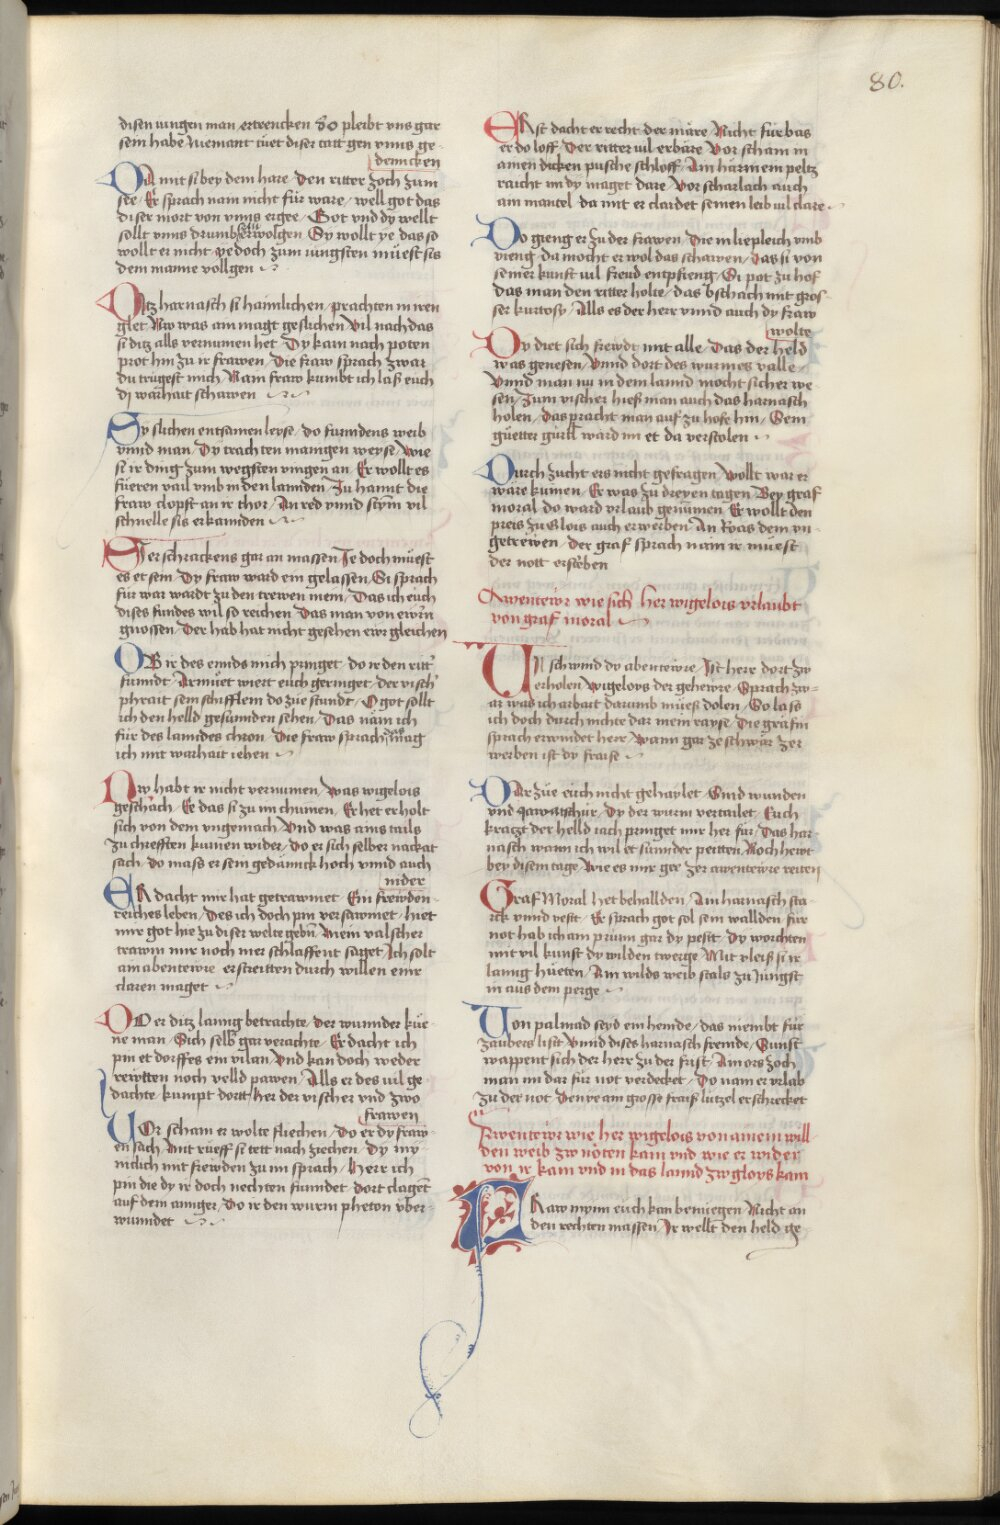 80.
disen iungen man ertrencken So pleibt vns gar
sein habe Niemant tuet diser tatt gen vnns ge-
denncken
DA mit si bey dem hare / den ritter zoch zum
see / Er sprach nain nicht für ware / well got das
diser mort von vnns ergee / Got vnd dy wellt
sollt vnns drumb verwolgen Sy wollt ye das so
wollt er nicht yedoch zum iungsten müest sis
dem manne vollgen
Ditz harnasch si haimlichen / prachten in iren
glet Nw was ain magt geslichen Vil nach das
si ditz alls vernumen het Dy kam nach poten
prot hin zu ir frawen / Die fraw sprach zwar
du trügest mich / Nain fraw kumbt ich laß euch
dy warhait schawen
Sy slichen entsamen leyse / do funndens weib
vnnd man / Dy trachten manigen weyse / Wie
si ir ding zum wegsten vingen an / Er wollt es
füeren vail vmb in den lannden / Zu hannt die
fraw clopft an ir thor / An red vnnd stym vil
schnelle sis erkannden
Sy erschrackens gar an massen / Ie doch müest
es et sein / Dy fraw ward ein gelassen / Si sprach
für war wardt zu den trewen mein / Das ich euch
dises fundes wil so reichen / Das man von ewrn
gnossen / Der hab hat nicht gesehen ewr gleichen
OB ir des ennds mich pringet / do ir den ritt'
funndt / Armüet wiert euch geringet / der visch'
phrait sein schifflein do züe stundt / O got sollt
ich den helld gesunnden sehen / Das näm ich
für des lanndes chron / Die fraw sprach mag
ich mit warhait iehen
Nw habt ir nicht vernumen / Was wigelois
geschach / Er das si zu im chumen / Er het erholt
sich von dem vngemach / Vnd was ains tails
zu chrefften kumen wider / do er sich selber nackat
sach / do mass er sein gedännck hoch vnnd auch
nider
ER dacht mir hat getrawmet / Ein frewden-
reiches leben / Des ich doch pin versawmet / hiet
mir got hie zu diser welte gebn / Mein valscher
trawm mir noch mer schlaffent saget / Ich solt
ain abentewre erstreitten durch willen einr
claren maget
DO er ditz lanng betrachte / der wunnder küe-
ne man / Sich selb gar verachte / Er dacht ich
pin et dorffes ein vilan / Vnd kan doch weder
rewtten noch velld pawen / Alls er des vil ge-
dachte kumpt dortt her der vischer vnd zwo
frawen
VOr scham er wolte fliechen / Do er dy fraw-
en sach / Mit rüeff si tett nach ziechen / Dy inn-
nicklich mit frewden zu im sprach / Herr ich
pin die dy ir doch nechten funndet / dort clagent
auf dem annger / Do ir den wurm pheton vber-
wunndet
ERst dacht er recht der märe / Nicht für bas
er do loff / Der ritter vil erbäre / Vor scham in
ainen dicken pusche schloff / Ain härmein peltz
raicht im dy maget dare / Vor scharlach auch
ain mantel / da mit er claidet seinen leib vil clare
Do gieng er zu der frawen / Die in liepleich vmb
vieng / da mocht er wol das schawen / Das si von
seiner kunft vil freud entpfieng / Si pat zu hof
das man den ritter holte / das bschach mit gros-
ser kurtosy / Alls es der herr vnnd auch dy fraw
wolte
Dy diet sich frewdt mit alle / Das der held
was genesen / Vnnd dort des wurmes valle /
Vnnd man nu in dem lannd mocht sicher we-
sen / Zum vischer hieß man auch das harnasch
holen / Das pracht man auf zu hofe hin / Sein
güetter gürtl ward im et da verstolen
Durch zucht ers nicht gefragen / Wollt war er
wäre kumen / Er was zu dreyen tagen / Bey graf
moral / do ward vrlaub genümen / Er wollt den
preis zu Glois auch erwerben / An Roas dem vn-
getrewen / der graf sprach nain ir müest
der nott ersterben
Awentewr wie sich her wigelois vrlaubt
von graf moral
Vil schwind dy abentewre / Ist herr dort zw
erholen / Wigeloys der gehewre / Sprach zw-
ar was ich arbait darumb müeß dolen / So laß
ich doch durch nichte dar mein rayse / Die gräfin
sprach erwindet herr / Wann gar ze schwär zer-
werben ist dy fraise
DAr züe euch nicht gehaylet / Sind wunden
vnd qwatschür / Dy der wurm vertailet / Euch
kratzt der helld iach pringet mir her für / Das har-
nasch wann ich wil et sunnder peitten / Noch hewt
bey disem tage / Wie es mir gee zer awentewre reiten
Graf Moral het behallden / Ain harnasch sta-
rck vnnd vest / Er sprach got sol sein wallden / für
not hab ich ain prünn gar dy pesst / Dy worchten
mit vil kunst dy wilden twerge / Mit vleiß si ir
lanng hüeten / Ain wilds weib stals zu Jüngst
in aus dem perge
Von palmad seyd ein hemde / das niembt für
zaubers lisst / Vnnd dises harnasch fremde / Sunst
wappent sich der herr zu der frist / Amors zoch
man im dar für not verdecket / Do nam er vrlab
zu der not / Den ye ain grosse fraiß lützel erschrecket
Awentewr wie her wigelois von ainem will-
den weib zw nöten kam vnd wie er wider
von ir kam vnd in das lannd zw gloys kam
FRaw mynn euch kan benüegen / Nicht an
den rechten massen / Ir wellt den held ge